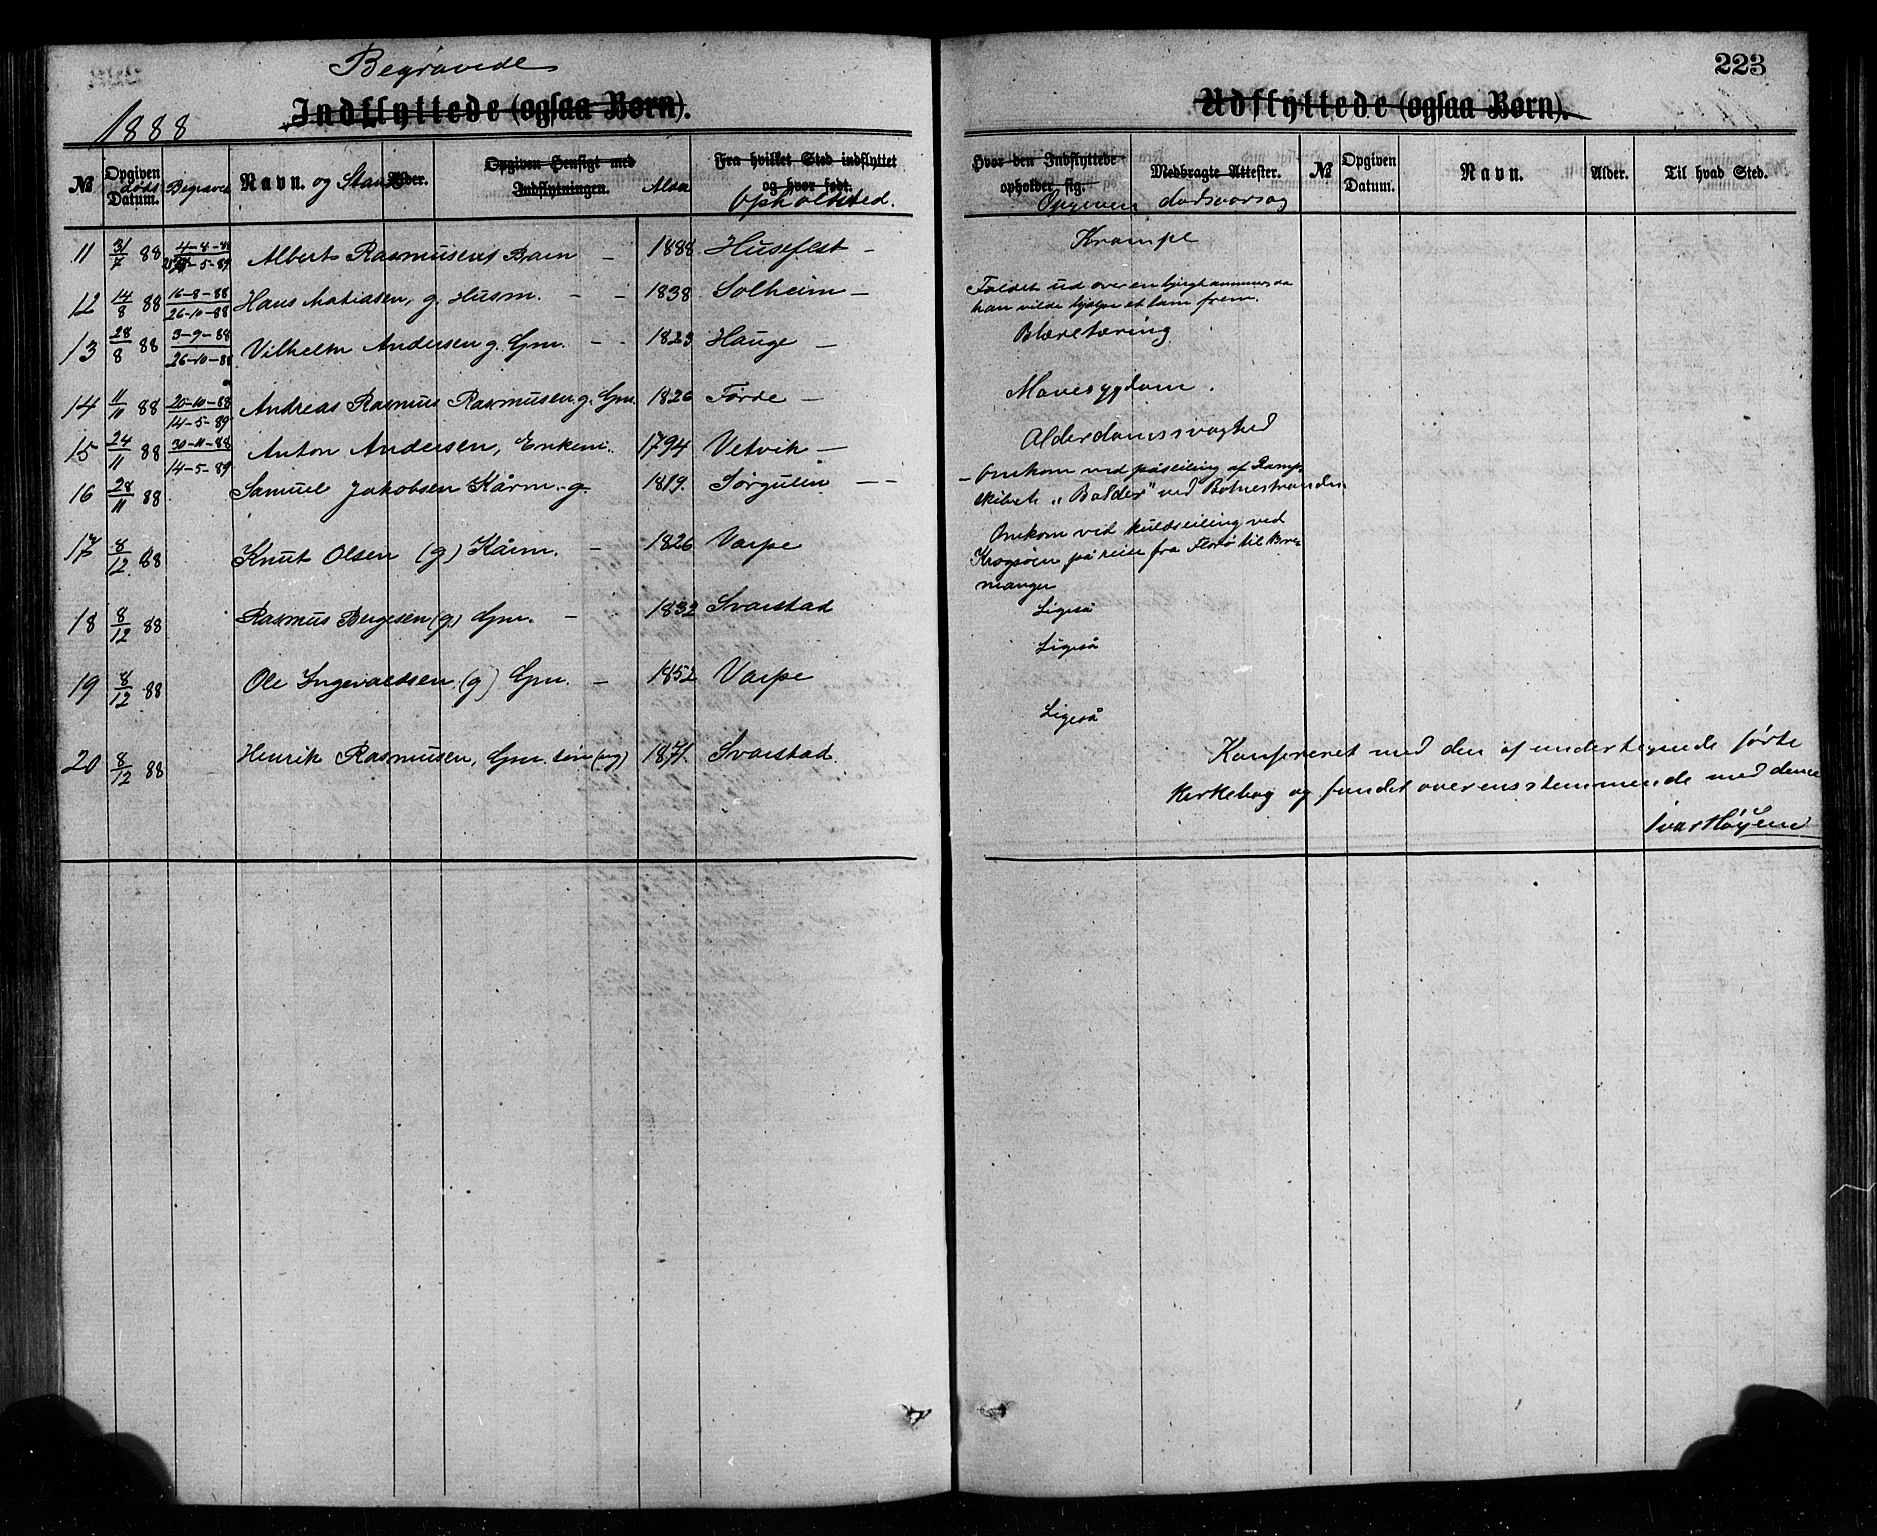 Begravede
223
Indflyttede (ogsaa Børn).
Udflyttede (ogsaa Børn).
1888
№ Opgiven døds Datum. Begravet Navn. og Stand Alder. Opgiven Hensigt med Indflytningen. Fra hvilket Sted indflyttet og hvor født. Opholdsted.
Hvor den Indflyttede opholder sig. Opgiven Medbragte Attester. dødsaarsag № Opgiven Datum. Navn. Alder. Til hvad Sted.
11 31/7 88 4-8-88 -5-89 Albert Rasmusens Barn – 1888 Husefest – Krampe
12 14/8 88 16-8-88 26-10-88 Hans Matiasen, g. Husm. – – 1838 Solheim – Faldet ud over en
han vilde hjælpe et lam frem.
13 28/8 88 3-9-88 26-10-88 Vilhelm Andersen g. Gm. – – 1823 Hauge – Blæretæring
14 11/10 88 20-10-88 14-5-89 Andreas Rasmus Rasmusen g. Gm. 1826 Førde – Mavesygdom.
15 24/11 88 30-11-88 14-5-89 Anton Andersen, Enkem. 1794 Vetvik – Alderdomssvaghed
16 28/11 88 Samuel Jakobsen Kårm. g. 1819. Sørgulen – – – Omkom ved påseiling af Damp-
skibet „Balder” ved Botnestranden
17 8/12 88 Knut Olsen (g) Kårm. – 1826 Varpe Omkom ved kuldseiling ved
Krogsøen på reise fra Florø til Bre-
manger
18 8/12 88 Rasmus Børgesen (g) Gm. – 1832 Svarstad Ligeså
19 8/12 88 Ole Ingevaldsen (g) Gm. – 1852 Varpe Ligeså
20 8/12 88 Henrik Rasmusen, Gm. søn (ug) 1871. Svarstad Ligeså
Konfereret med den af undertegnede førte
kirkebog og fundet overensstemmende med denne
Ivar Høyem